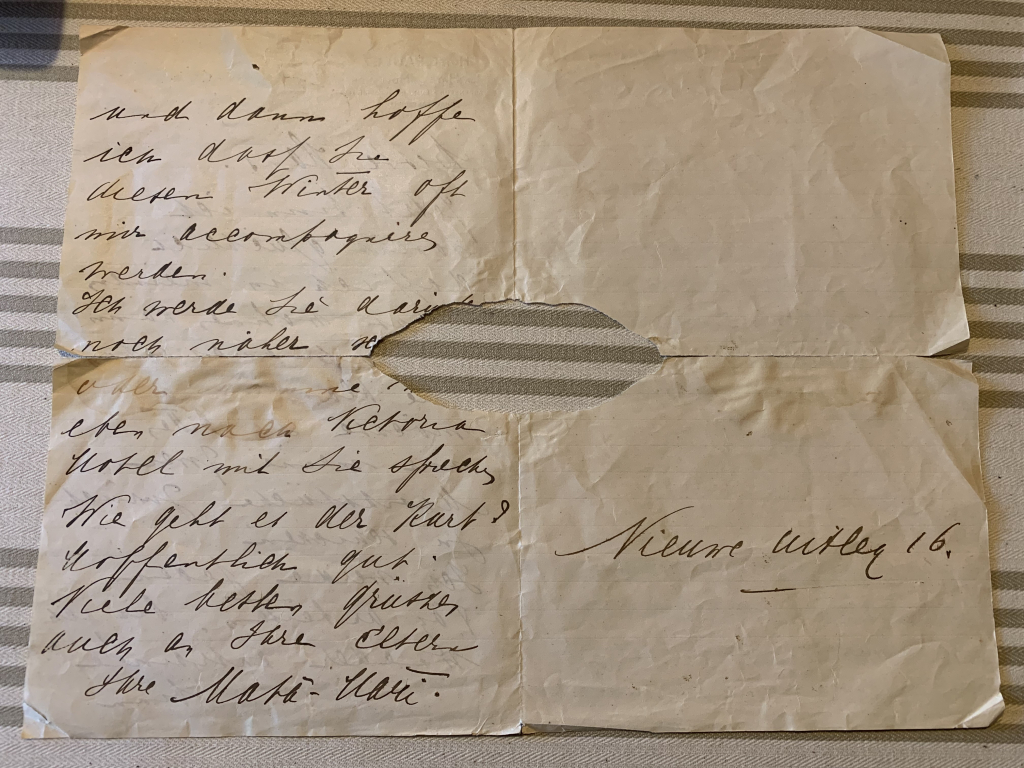 und dann hoffe
ich darf Sie
diesen Winter oft
mir accompagniren
werden.
Ich werde Sie
noch näher
oder
eben nach Victoria
Hotel mit Sie sprechen
Wie geht es der Kurt?
Hoffentlich gut.
Viele besten grüssen
auch an Ihre Eltern
Ihre Mata-Hari.
Nieuwe Uitleg 16.